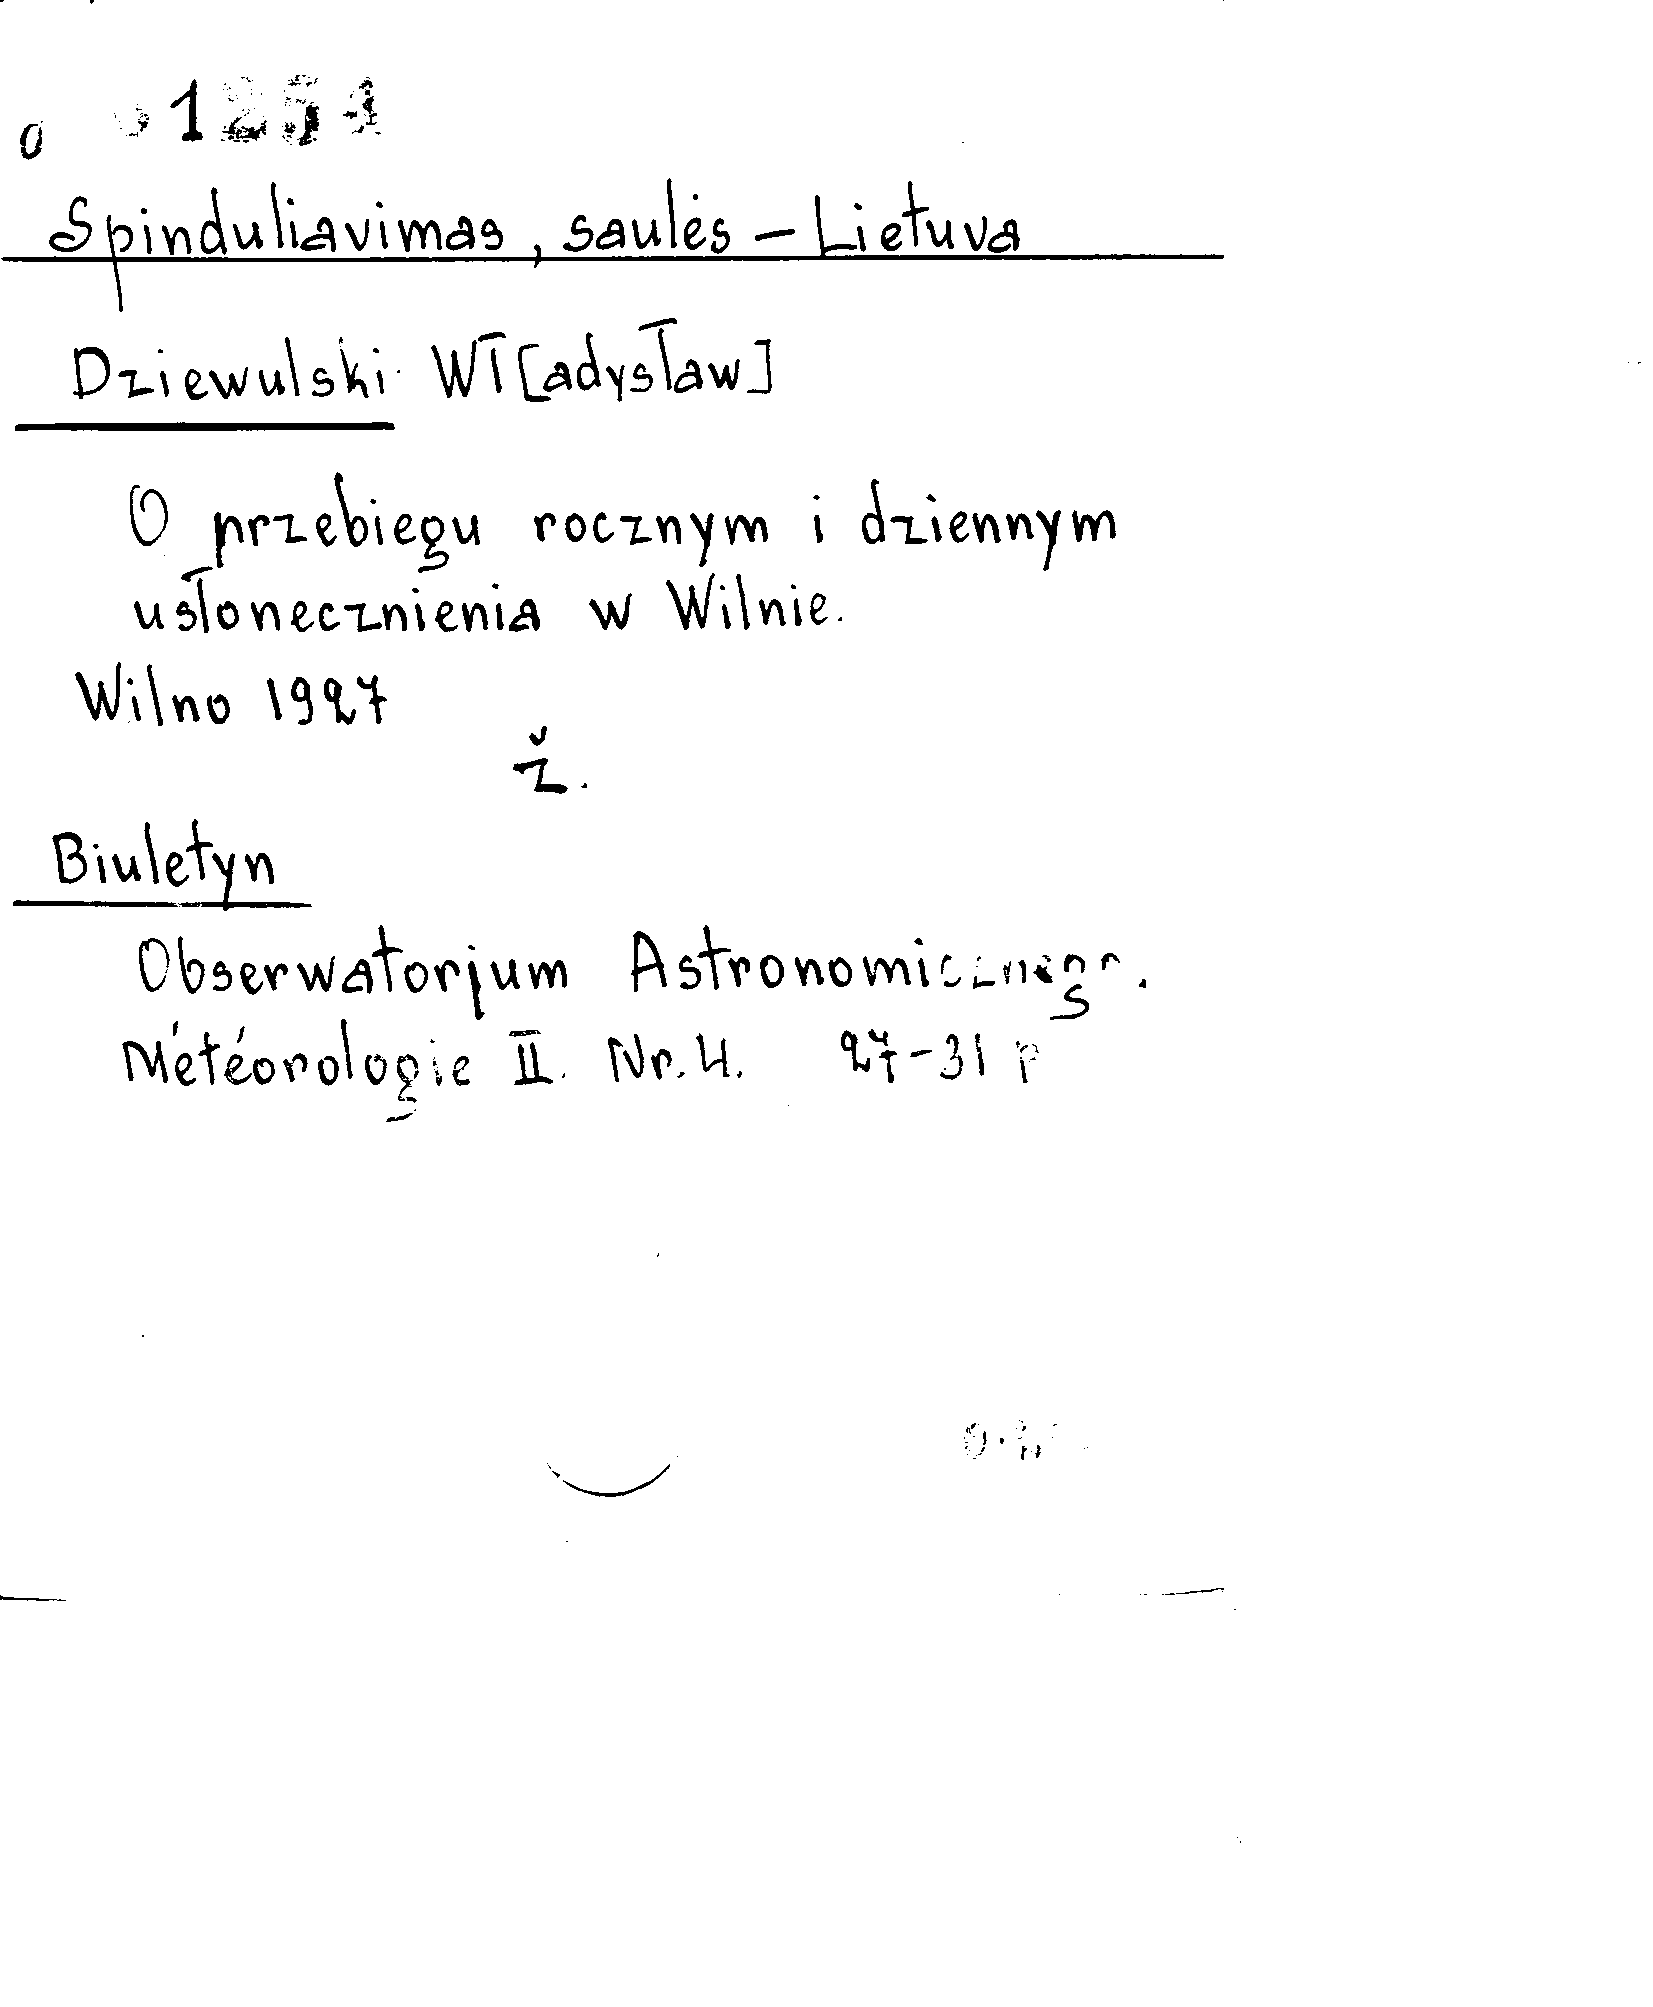 1254
Spinduliavimas, saulės – Lietuva
Dziewulski Wł[adysław]
O przebiegu rocznym i dziennym
usłonecznienia w Wilnie.
Wilno 1927
Ž.
Biuletyn
Obserwatorjum Astronomicznego.
Météorologie II. Nr. 4. 27-31 p